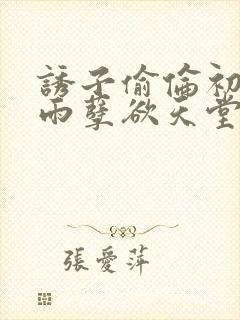 誘子偷倫初
雨孽欲天堂
張愛萍